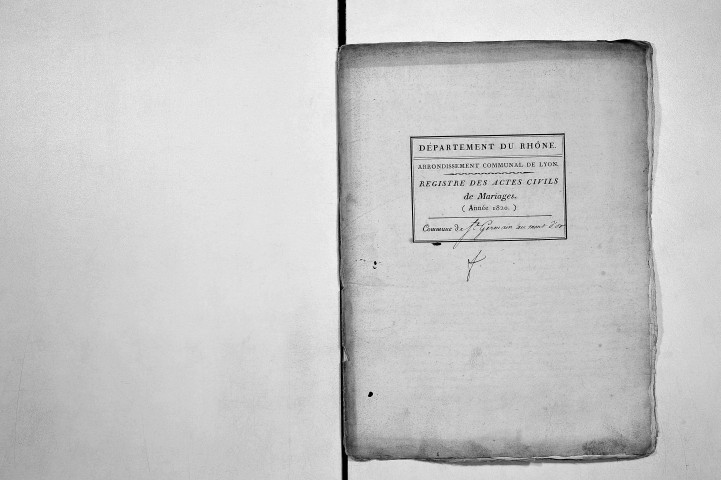 DÉPARTEMENT DU RHÔNE.
ARRONDISSEMENT COMMUNAL DE LYON.
REGISTRE DES ACTES CIVILS
de Mariages.
( Année 1820. )
Commune de St. Germain au mont d'or